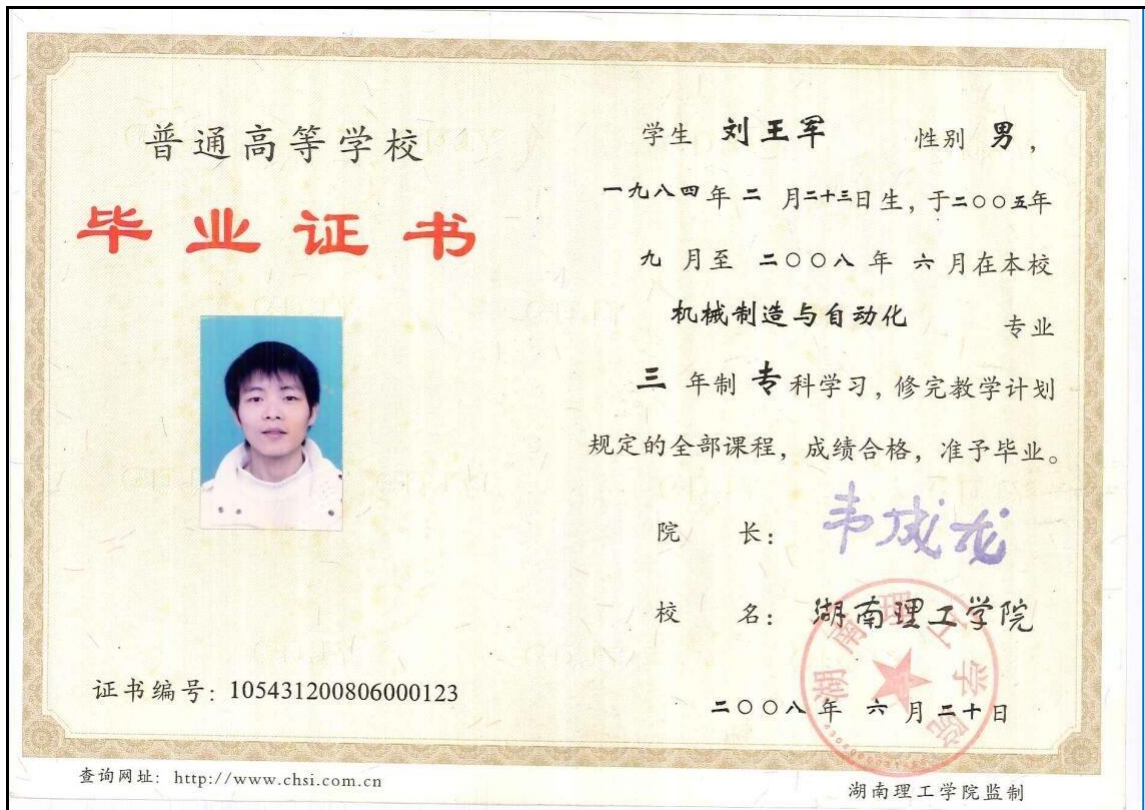 普通高等学校
毕业证书
证书编号：105431200806000123
学生 刘王军 性别 男，
一九八四年 二 月二十三日生，于二〇〇五年
九 月至 二〇〇八 年 六 月在本校
机械制造与自动化 专业
三 年制 专 科学习，修完教学计划
规定的全部课程，成绩合格，准予毕业。
院 长：韦成龙
校 名：湖南理工学院
湖南理工学院
二〇〇八 年 六 月 二十 日
查询网址：http://www.chsi.com.cn
湖南理工学院监制